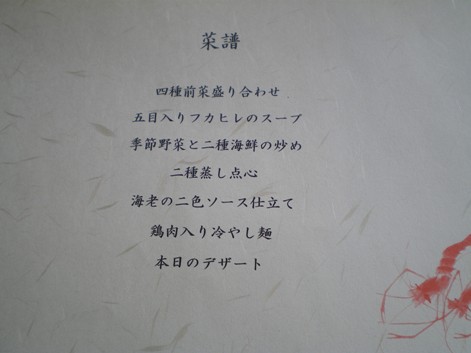 菜譜
四種前菜盛り合わせ
五目入りフカヒレのスープ
季節野菜と二種海鮮の炒め
二種蒸し点心
海老の二色ソース仕立て
鶏肉入り冷やし麺
本日のデザート